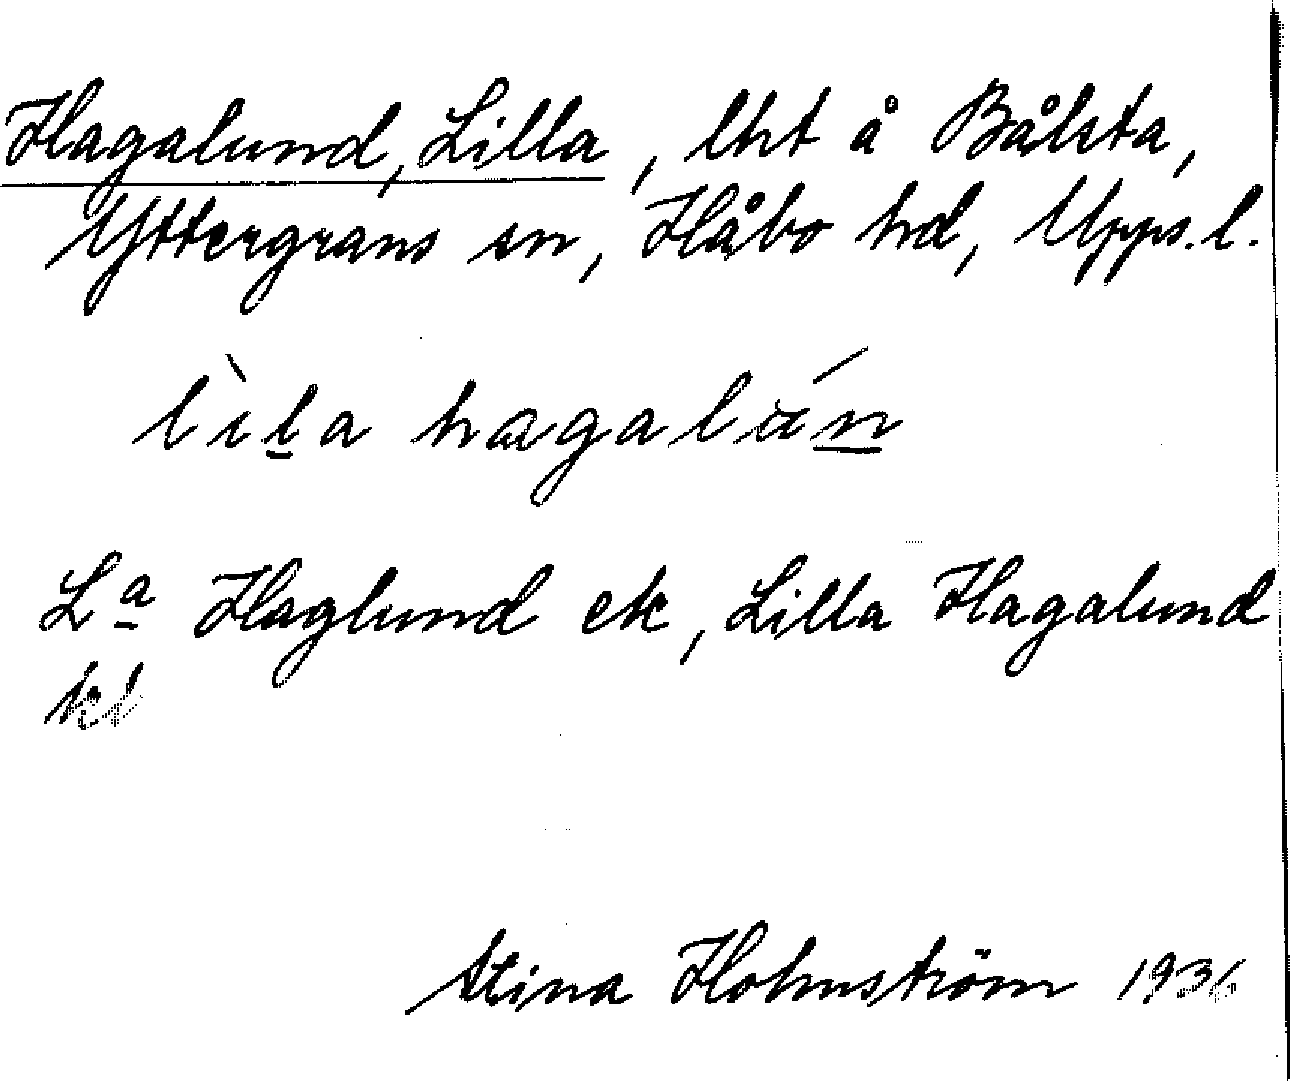 Hagalund, Lilla, lht å Bålsta,
Yttergrans sn, Håbo hd, Upps. l.
lìla hagalún
La Haglund ek, Lilla Hagalund
kl
Stina Holmström 1936